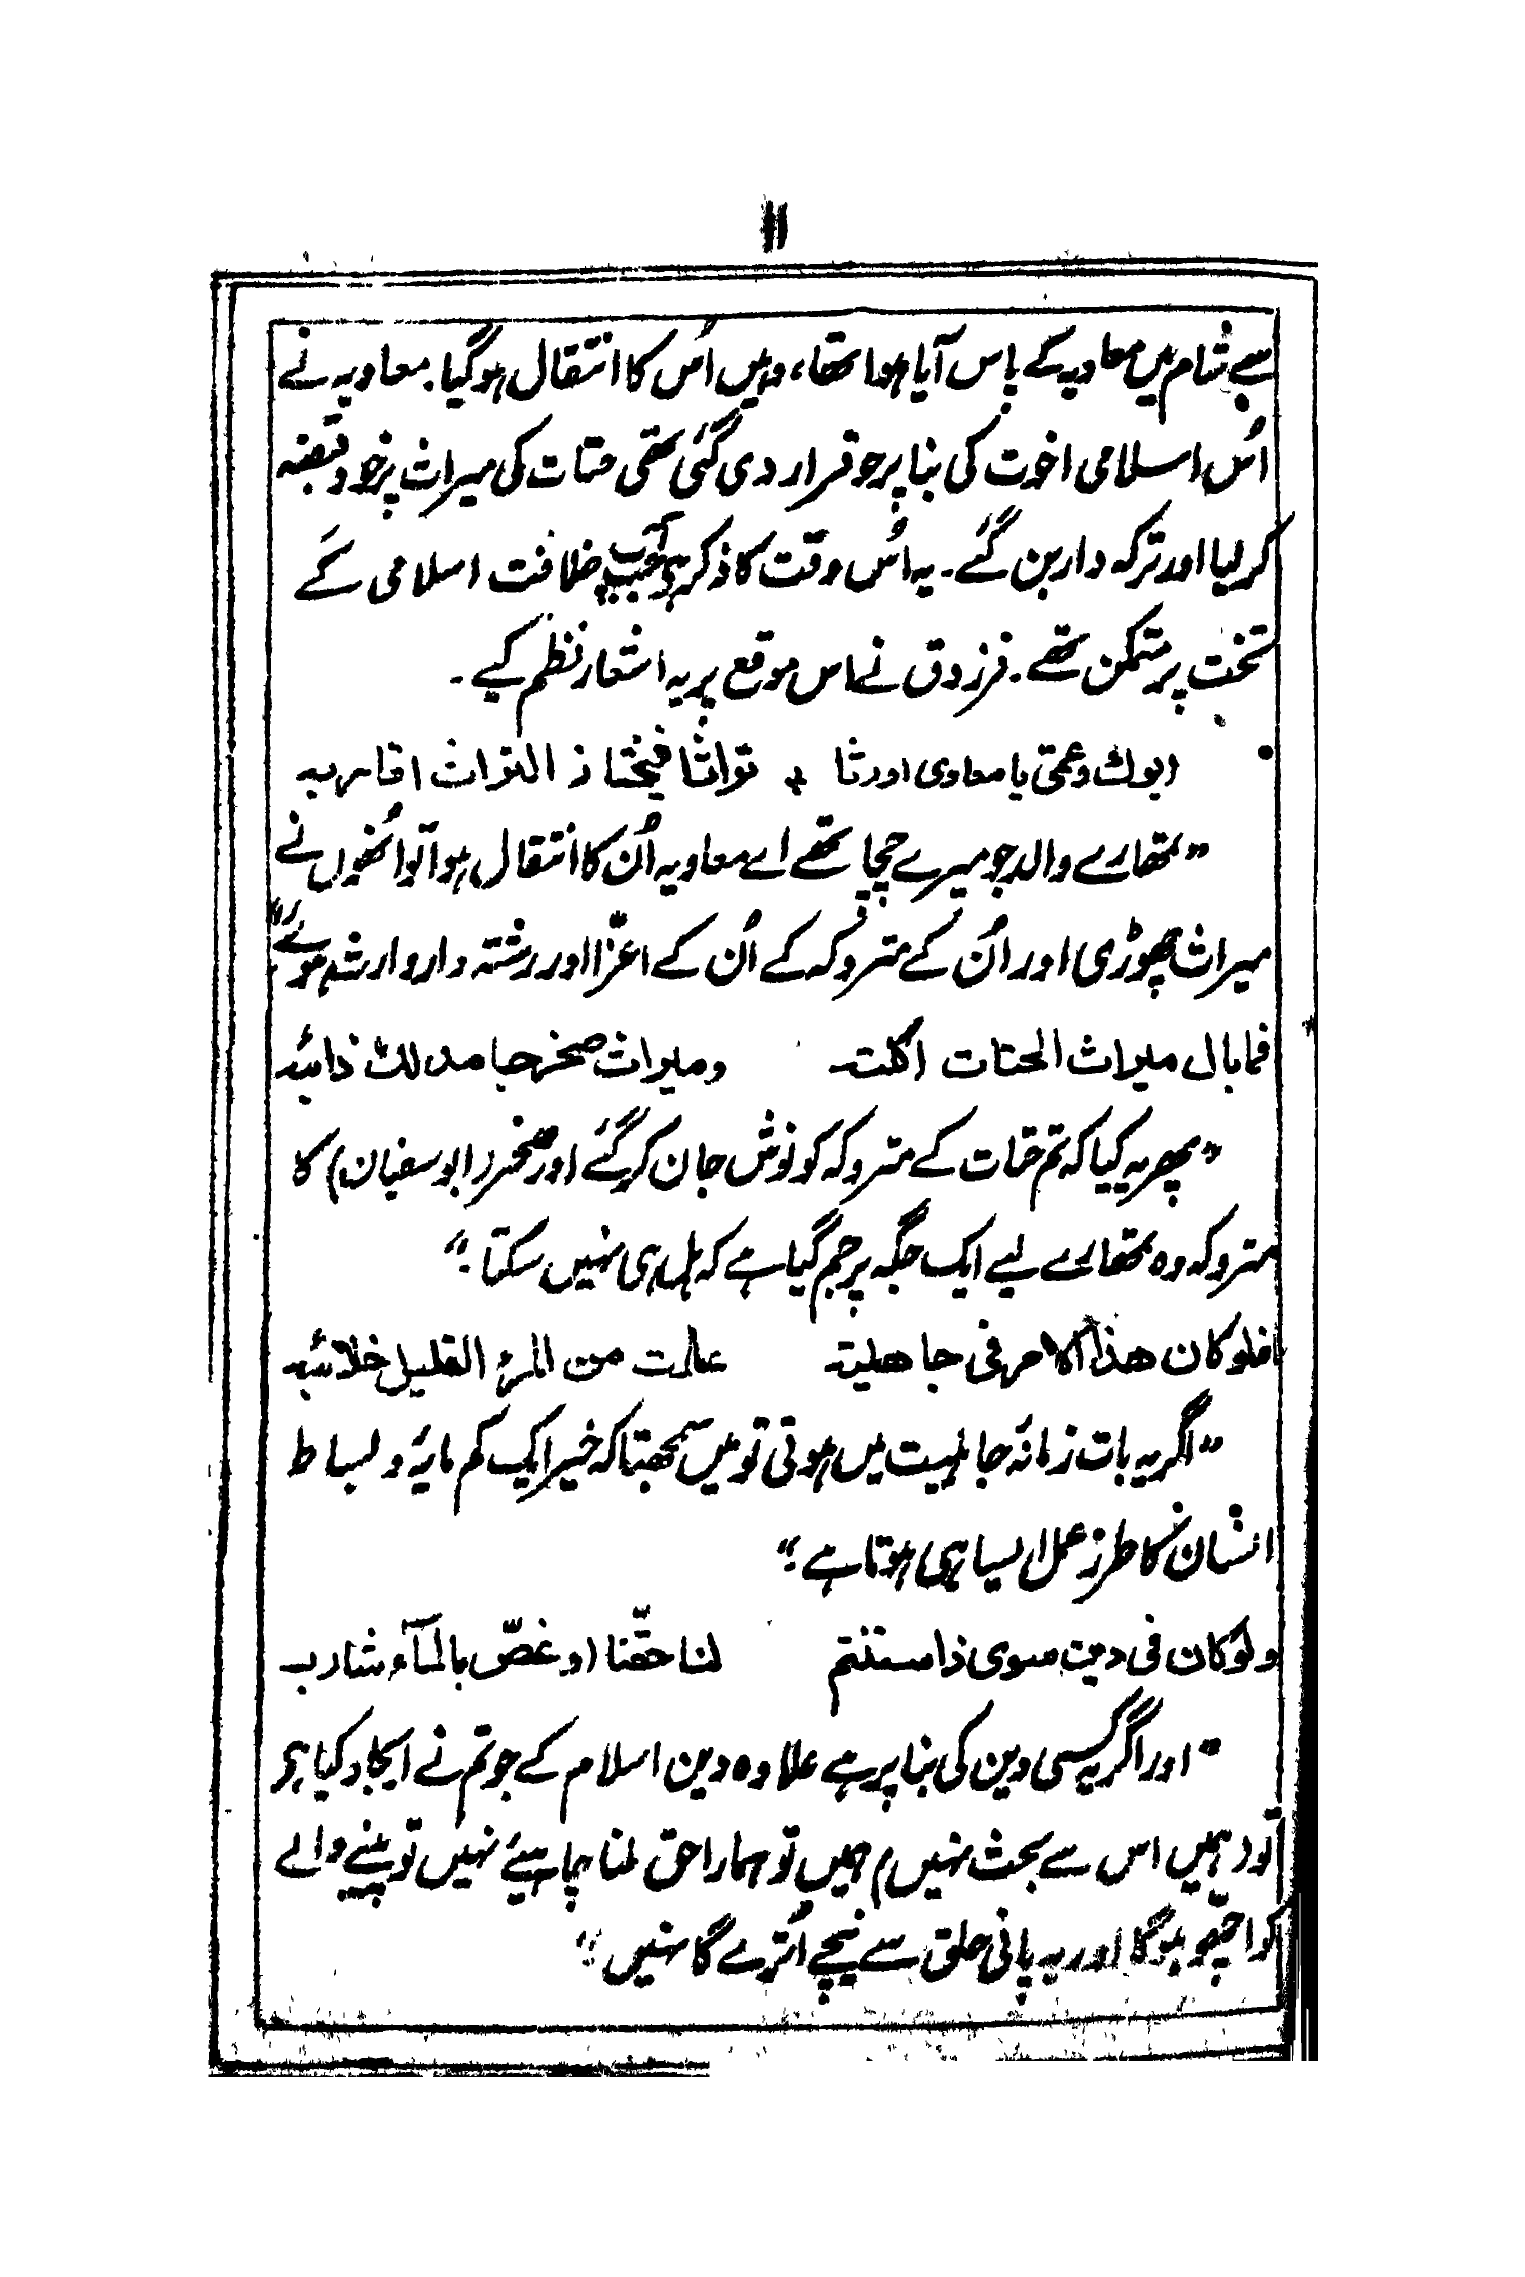 ۱۱
سے شام میں معاویہ کے پاس آیا ہوا تھا، وہیں اُس کا انتقال ہوگیا۔ معاویہ نے
اُس اسلامی اخوت کی بنا پر جو قرار دی گئی تھی حتات کی میراث پر خود قبضہ
کرلیا اور ترکہ دار بن گئے۔ یہ اُس وقت کا ذکر ہے جب آپ خلافت اسلامی کے
تخت پر متمکن تھے۔ فرزدق نے اس موقع پر یہ اشعار نظم کیے۔
ابوك وعمی یا معاوی اورثا ؞ تراثا فیحتاز التراث اقاربہ
”تمھارے والد جو میرے چچا تھے اے معاویہ اُن کا انتقال ہوا تو انھوں نے
میراث چھوڑی اور اُن کے متروکہ کے اُن کے اعزّا اور رشتہ دار وارث ہوئے“
فما بال میراث الحتات اکلتہ ومیراث صخر جامد لك ذائبہ
”پھر یہ کیا کہ تم حتات کے متروکہ کو نوش جان کرگئے اور صخر (ابوسفیان) کا
متروکہ وہ تمھارے لیے ایک جگہ پر جم گیا ہے کہ ہل ہی نہیں سکتا۔“
فلو کان ھذا الامر فی جاھلیۃ علمت من المرء القلیل حلائبہ
”اگر یہ بات زمانۂ جاہلیت میں ہوتی تو میں سمجھتا کہ خیر ایک کم مایۂ و بساط
انسان کا طرز عمل ایسا ہی ہوتا ہے۔“
ولو کان فی دین سوی ذا سننتم لنا حقّنا او غصّ بالمآء شاربہ
”اور اگر یہ کسی دین کی بنا پر ہے علاوہ دین اسلام کے جو تم نے ایجاد کیا ہو
تو (ہمیں اس سے بحث نہیں) ہمیں تو ہمارا حق ملنا چاہیئے نہیں تو پینے والے
کو اچھّو ہوگا اور یہ پانی حلق سے نیچے اُترے گا نہیں۔“